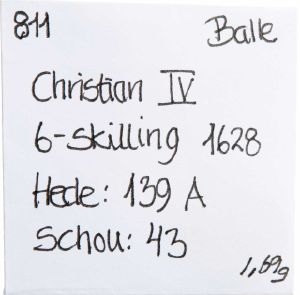 811 Balle
Christian IV
6-skilling 1628
Hede: 139 A
Schou: 43
1,69g